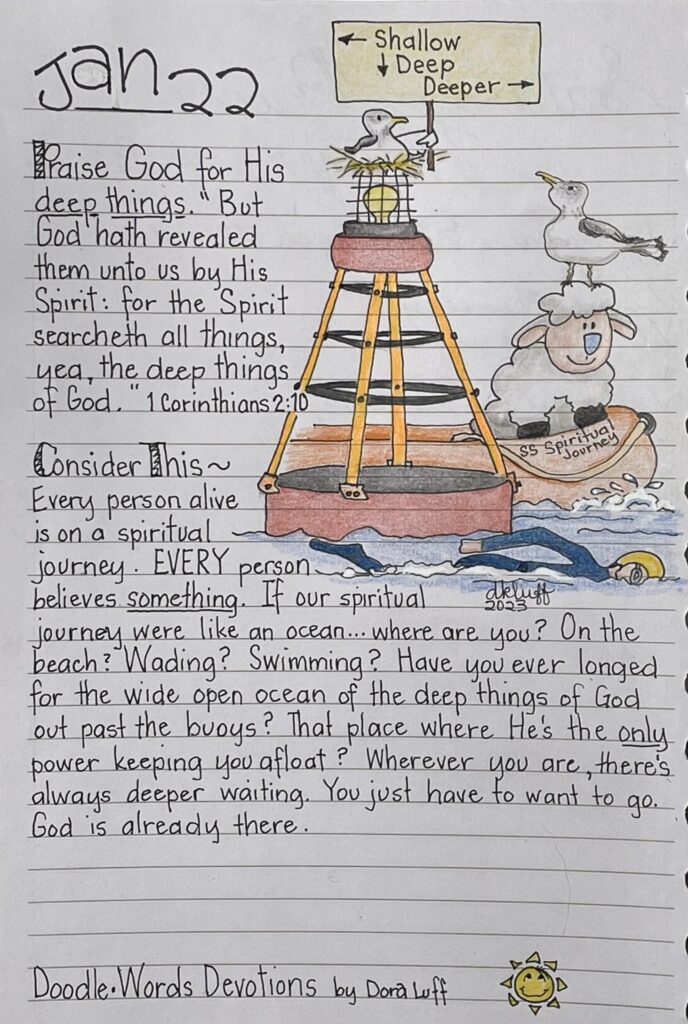 Jan 22
← Shallow
↓ Deep
Deeper →
Praise God for His
deep things. "But
God hath revealed
them unto us by His
Spirit: for the Spirit
searcheth all things,
yea, the deep things
of God." 1 Corinthians 2:10
SS Spiritual
Journey
Consider This~
Every person alive
is on a spiritual
journey. EVERY person
believes something. If our spiritual
dkluff
2023
journey were like an ocean... where are you? On the
beach? Wading? Swimming? Have you ever longed
for the wide open ocean of the deep things of God
out past the buoys? That place where He's the only
power keeping you afloat? Wherever you are, there's
always deeper waiting. You just have to want to go.
God is already there.
Doodle•Words Devotions by Dora Luff